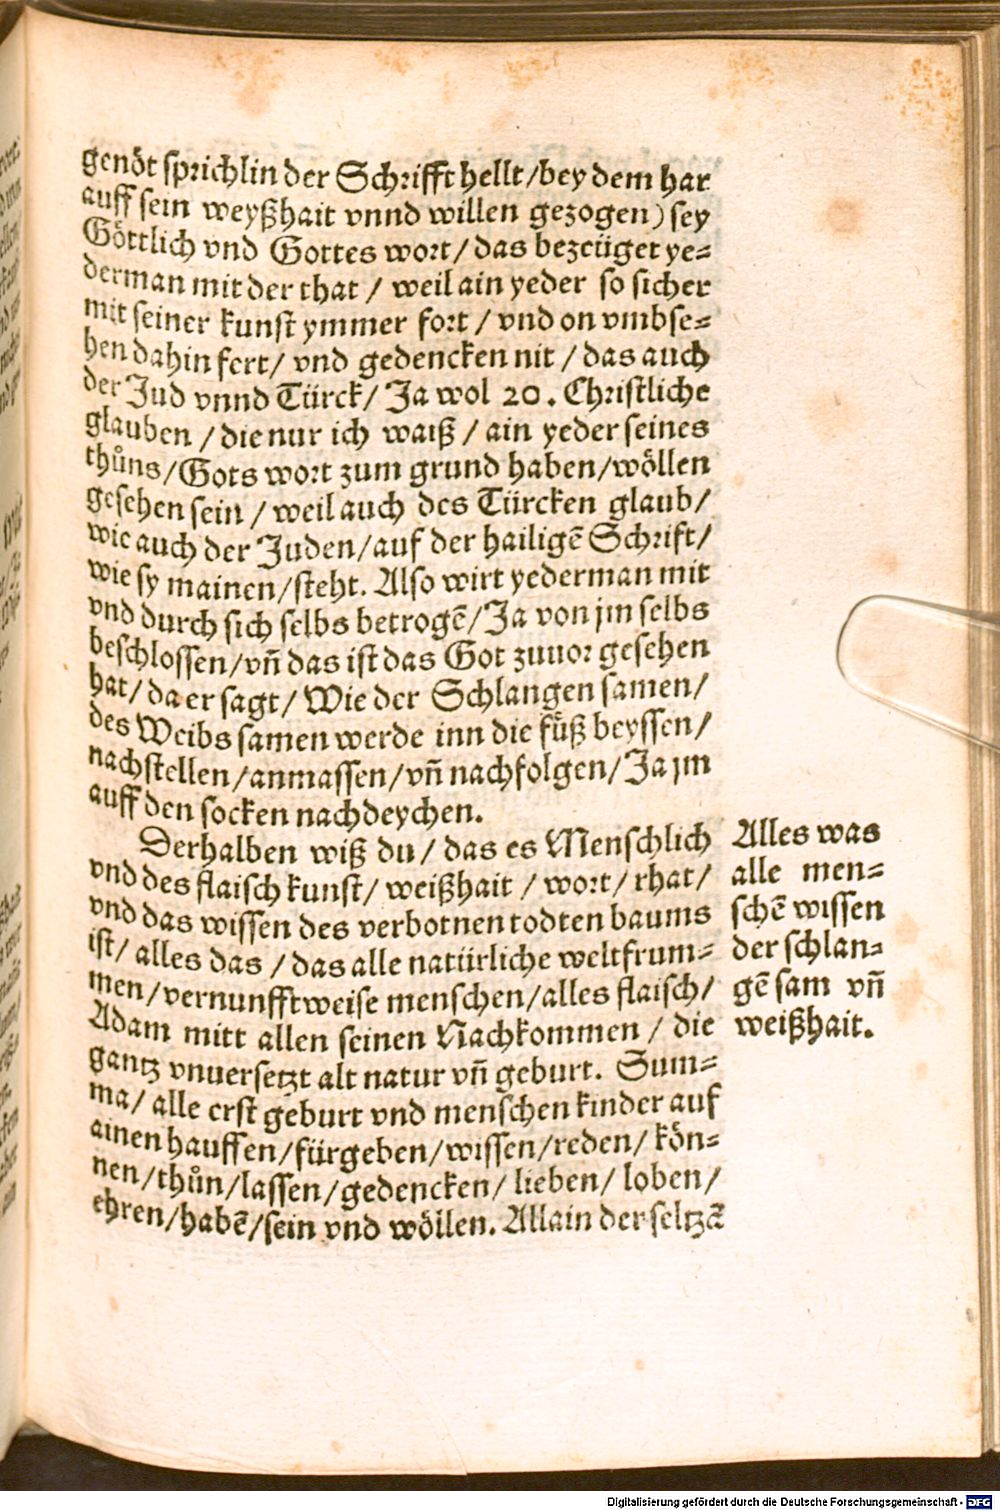 genöt sprichlin der Schrifft hellt/bey dem har
auff sein weyßhait vnnd willen gezogen) sey
Göttlich vnd Gottes wort/ das bezeüget ye⸗
derman mit der that / weil ain yeder so sicher
mit seiner kunst ymmer fort / vnd on vmbse⸗
hen dahin fert/ vnd gedencken nit / das auch
der Jud vnnd Türck/ Ja wol 20. Christliche
glauben / die nur ich waiß / ain yeder seines
thůns/Gots wort zum grund haben/wöllen
gesehen sein / weil auch des Türcken glaub/
wie auch der Juden/auf der hailigē Schrift/
wie sy mainen/steht. Also wirt yederman mit
vnd durch sich selbs betrogē/Ja von jm selbs
beschlossen/vñ das ist das Got zuuor gesehen
hat/ da er sagt/ Wie der Schlangen samen/
des Weibs samen werde inn die füß beyssen/
nachstellen/anmassen/vñ nachfolgen/Ja jm
auff den socken nachdeychen.
Derhalben wiß du/ das es Menschlich
vnd des flaisch kunst/ weißhait / wort/ rhat/
vnd das wissen des verbotnen todten baums
ist/ alles das / das alle natürliche weltfrum⸗
men/vernunfftweise menschen/alles flaisch/
Adam mitt allen seinen Nachkommen / die
gantz vnuersetzt alt natur vñ geburt. Sum⸗
ma/ alle erst geburt vnd menschen kinder auf
ainen hauffen/fürgeben/wissen/reden/ kön⸗
nen/thůn/lassen/gedencken/ lieben/ loben/
ehren/habē/sein vnd wöllen. Allain der seltzā
Alles was
alle men⸗
schē wissen
der schlan⸗
gē sam vñ
weißhait.
Digitalisierung gefördert durch die Deutsche Forschungsgemeinschaft - DFG